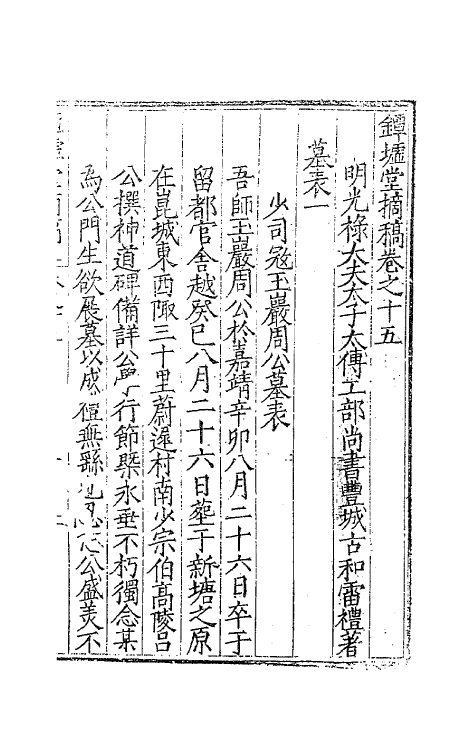 鐔墟堂摘稿卷之十五
明光祿大夫太子太傅工部尚書豐城古和雷禮著
墓表一
少司寇玉巖周公墓表
吾師玉巖周公於嘉靖辛卯八月二十六日卒于
留都官舍越癸巳八月二十六日葬于新塘之原
在崑城東西陬三十里蔚遲村南少宗伯高陵呂
公撰神道碑備詳公學行節槩永垂不朽獨念某
為公門生欲展墓以成禮無繇也公盛美不